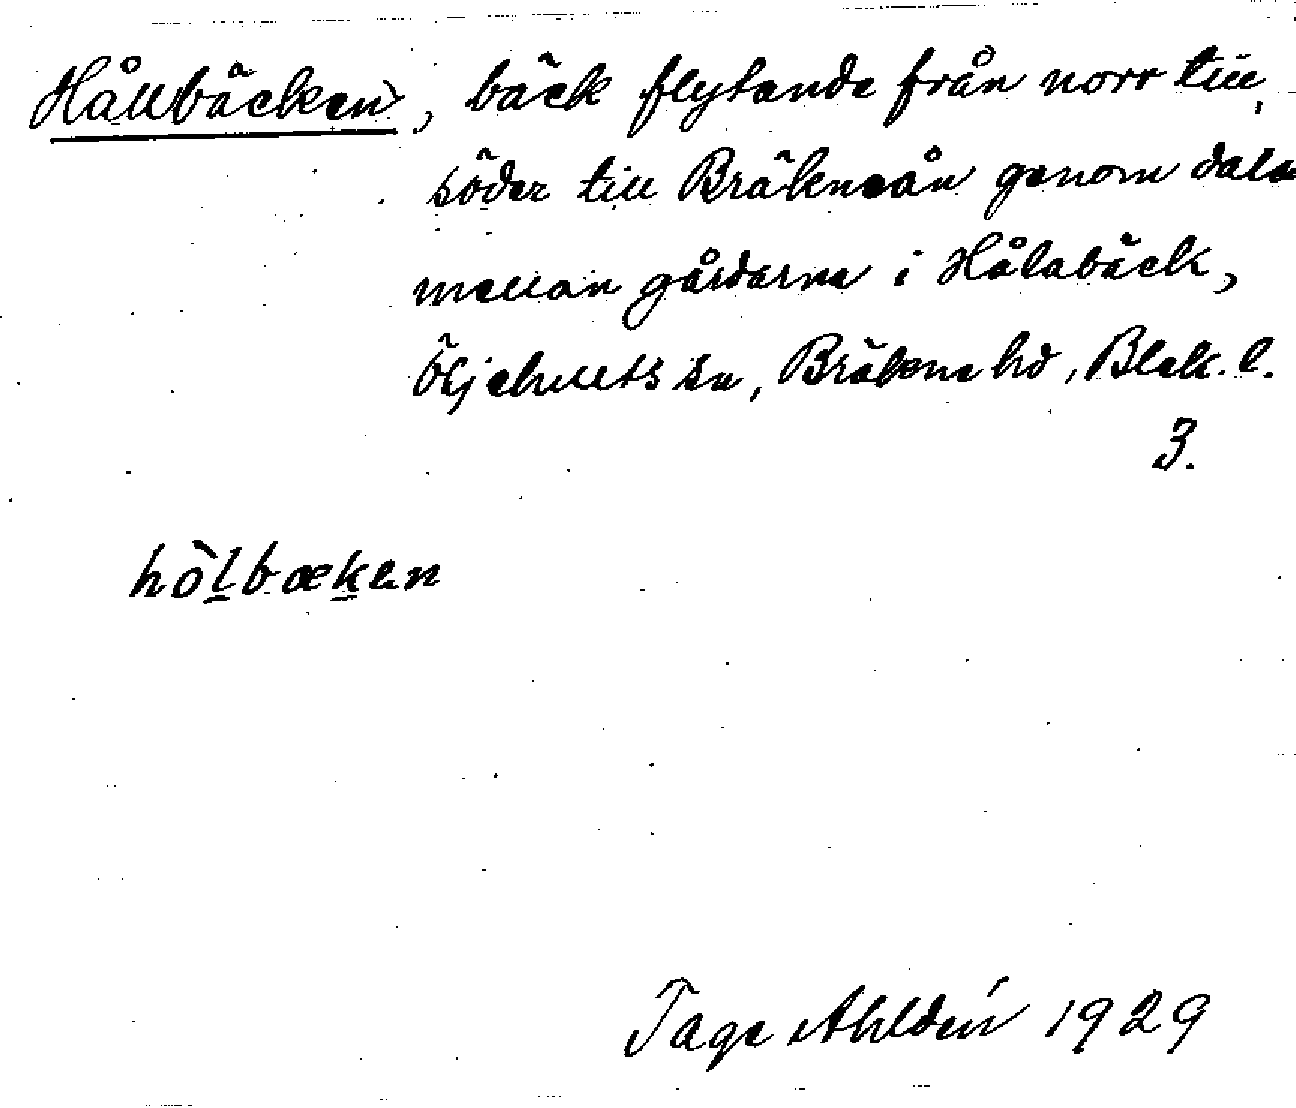 Hållbäcken, bäck flytande från norr till
söder till Bräkneån genom dalen
mellan gårdarne i Hålabäck,
Öljehults sn, Bräkne hd, Blek. l.
3.
hòlbækan
Tage Ahldén 1929